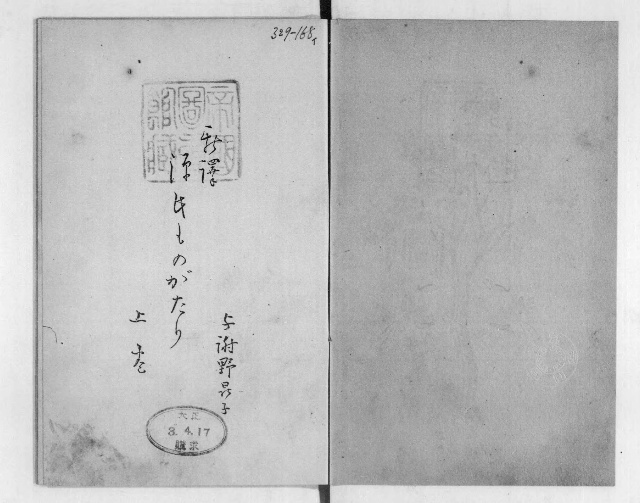 329-168イ
帝國圖書館藏
新譯
源氏ものがたり
与謝野晶子
上巻
大正
3.4.17
購求